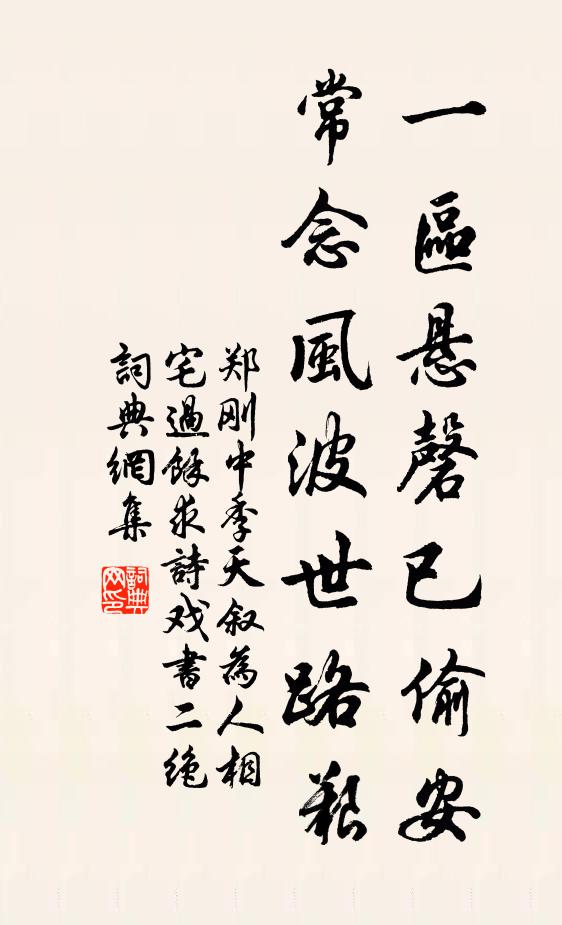 一區懸磬已偷安
常念風波世路艱
郑刚中季天叙為人相
宅過餘求詩戏書二绝
詞典網集
詞典網印